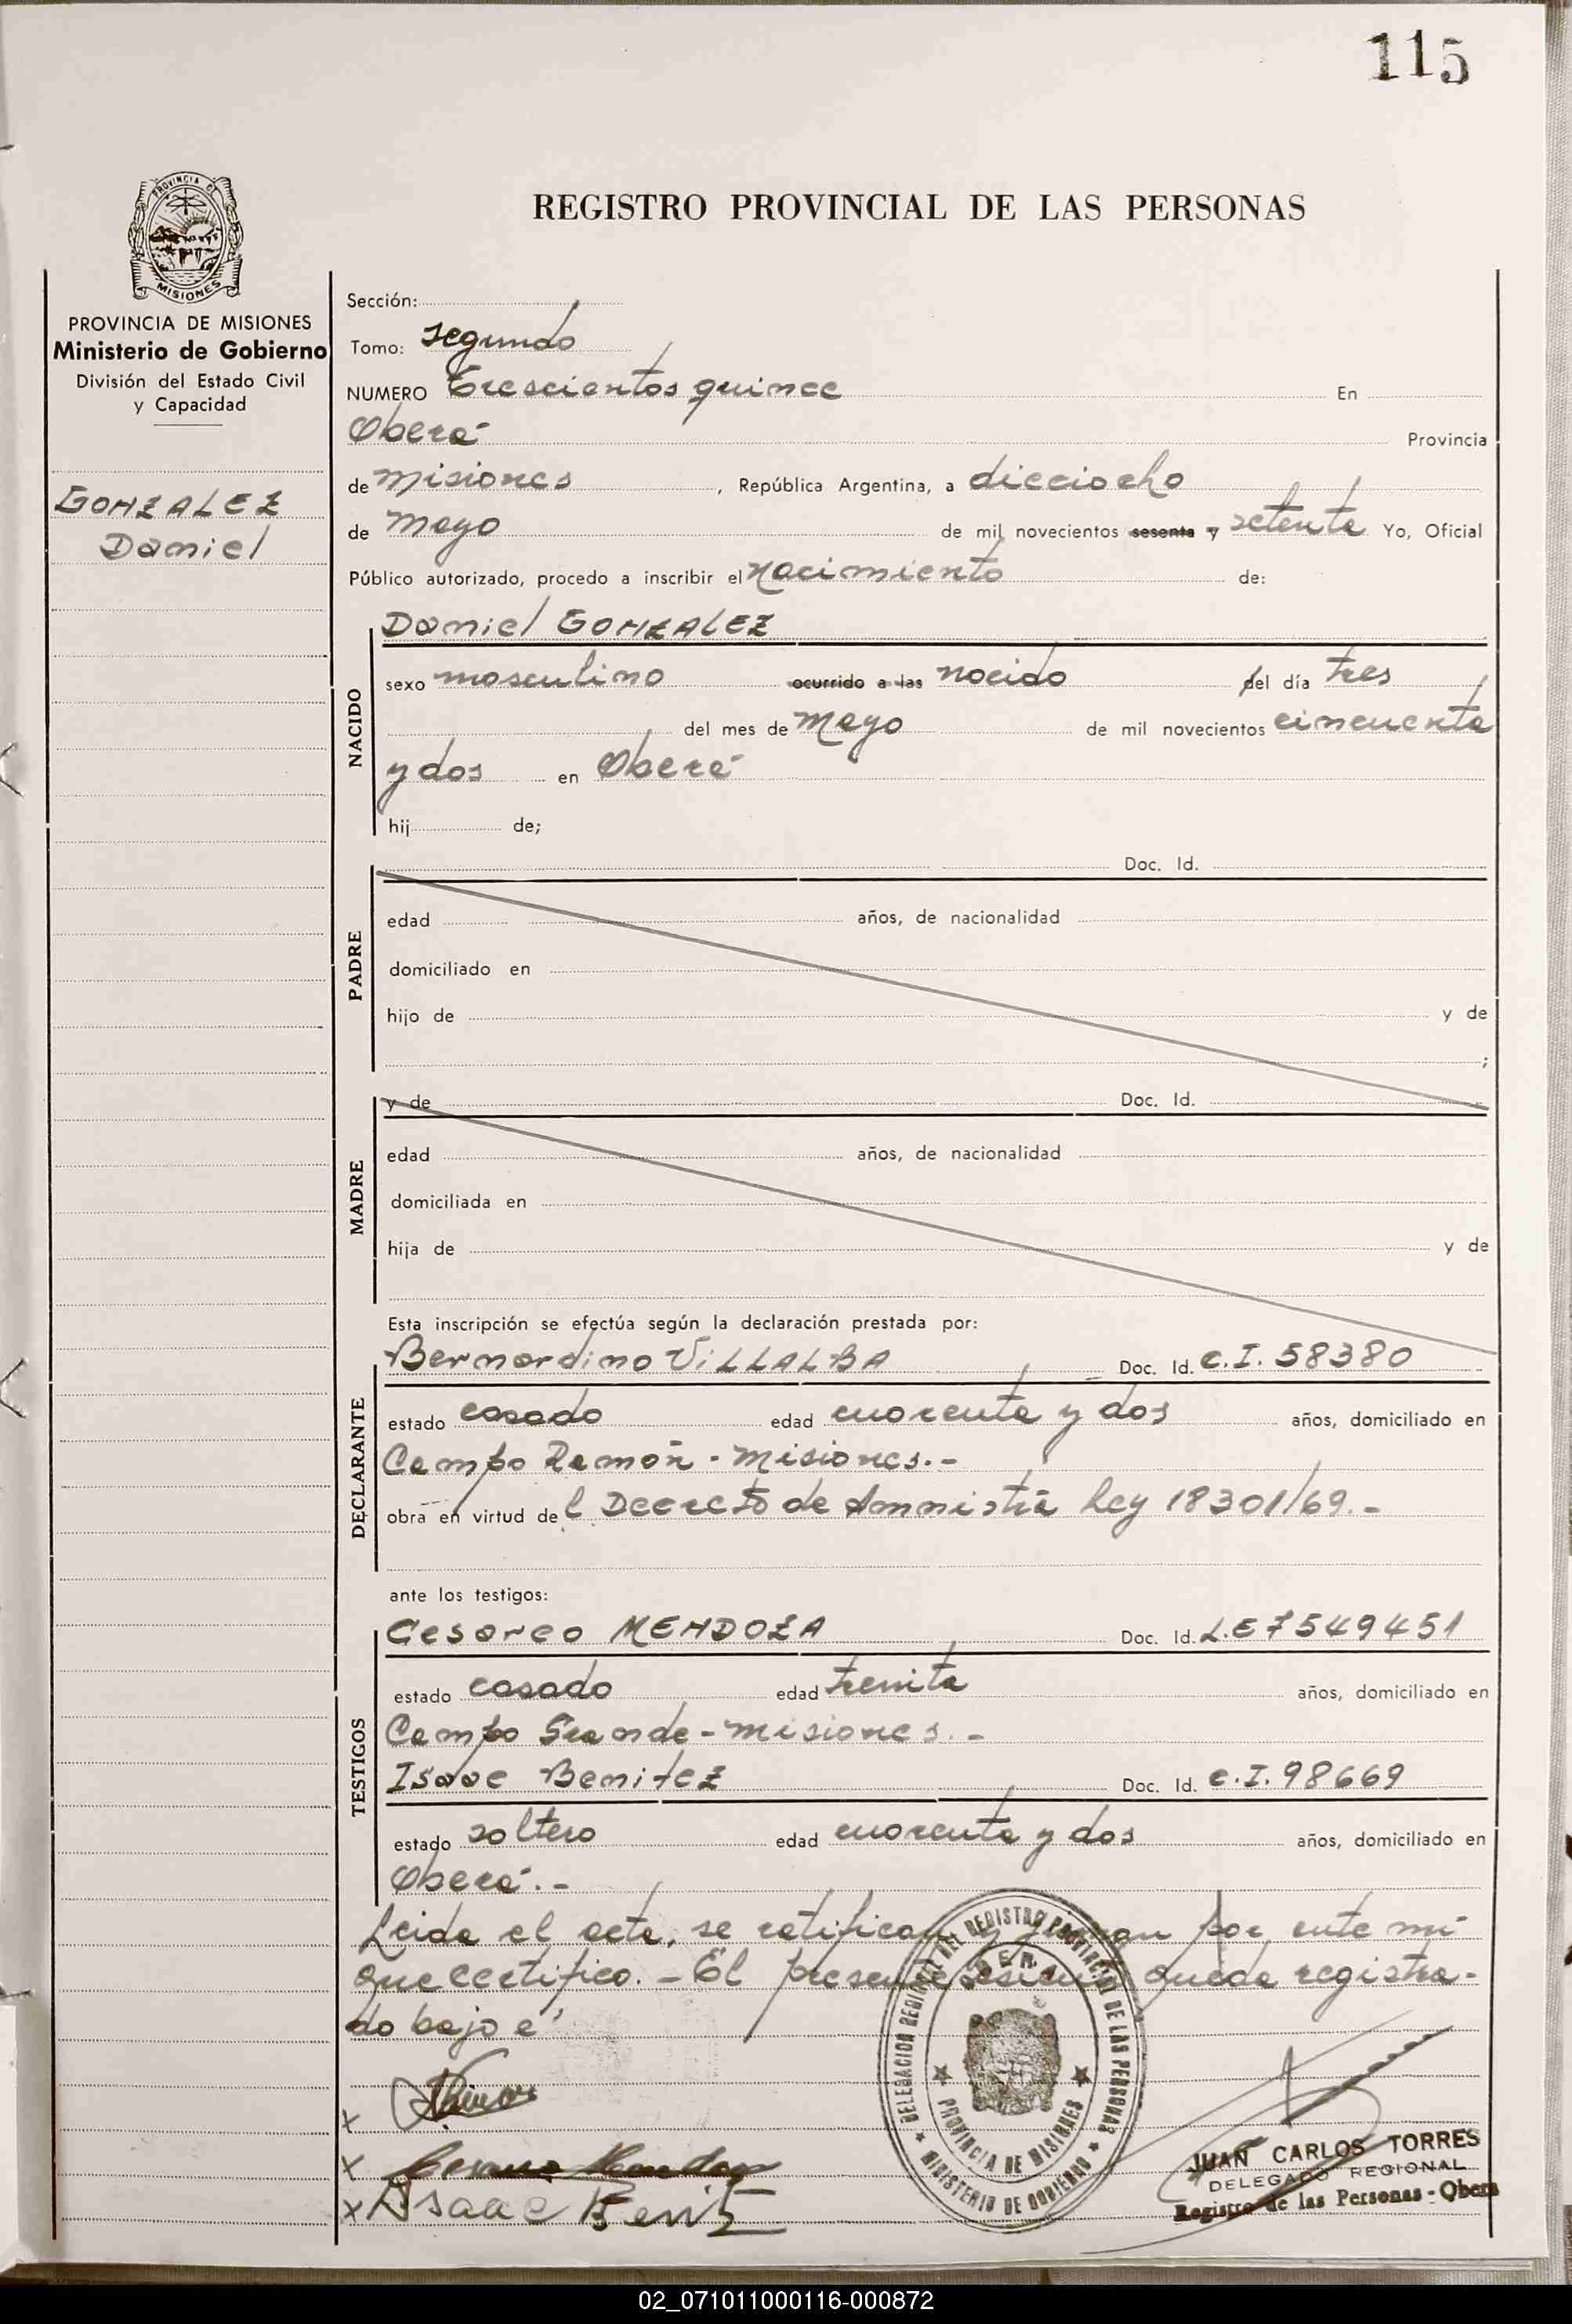 115
PROVINCIA DE
MISIONES
REGISTRO PROVINCIAL DE LAS PERSONAS
PROVINCIA DE MISIONES
Ministerio de Gobierno
División del Estado Civil
y Capacidad
GONZALEZ
Daniel
Sección:
Tomo: segundo
NUMERO Trescientos quince En
Oberá Provincia
de misiones, República Argentina, a dieciocho
de mayo de mil novecientos sesenta y setenta Yo, Oficial
Público autorizado, procedo a inscribir el nacimiento de:
Daniel GONZALEZ
NACIDO
sexo masculino ocurrido a las nacido del día tres
del mes de mayo de mil novecientos cincuenta
y dos en Oberá
hij de;
PADRE
Doc. Id.
edad años, de nacionalidad
domiciliado en
hijo de y de
;
MADRE
y de Doc. Id.
edad años, de nacionalidad
domiciliada en
hija de y de
Esta inscripción se efectúa según la declaración prestada por:
DECLARANTE
Bernardino VILLALBA Doc. Id. C.I. 58380
estado casado edad cuarenta y dos años, domiciliado en
Campo Ramón - misiones.-
obra en virtud del Decreto de Amnistía Ley 18301/69.-
ante los testigos:
TESTIGOS
Cesareo MENDOZA Doc. Id. L.E 7549451
estado casado edad treinta años, domiciliado en
Campo Grande - misiones.-
Isaac Benitez Doc. Id. C.I. 98669
estado soltero edad cuarenta y dos años, domiciliado en
Oberá.-
Leida el acta, se ratifican y firman por ante mí
que certifico.- El presente queda registra-
do bajo
DELEGACION REGIONAL DEL REGISTRO PROVINCIAL DE LAS PERSONAS
PROVINCIA DE MISIONES
MINISTERIO DE GOBIERNO
x
x Cesareo Mendoza
x Isaac Benitez
JUAN CARLOS TORRES
DELEGADO REGIONAL
Registro de las Personas - Obera
02_071011000116-000872